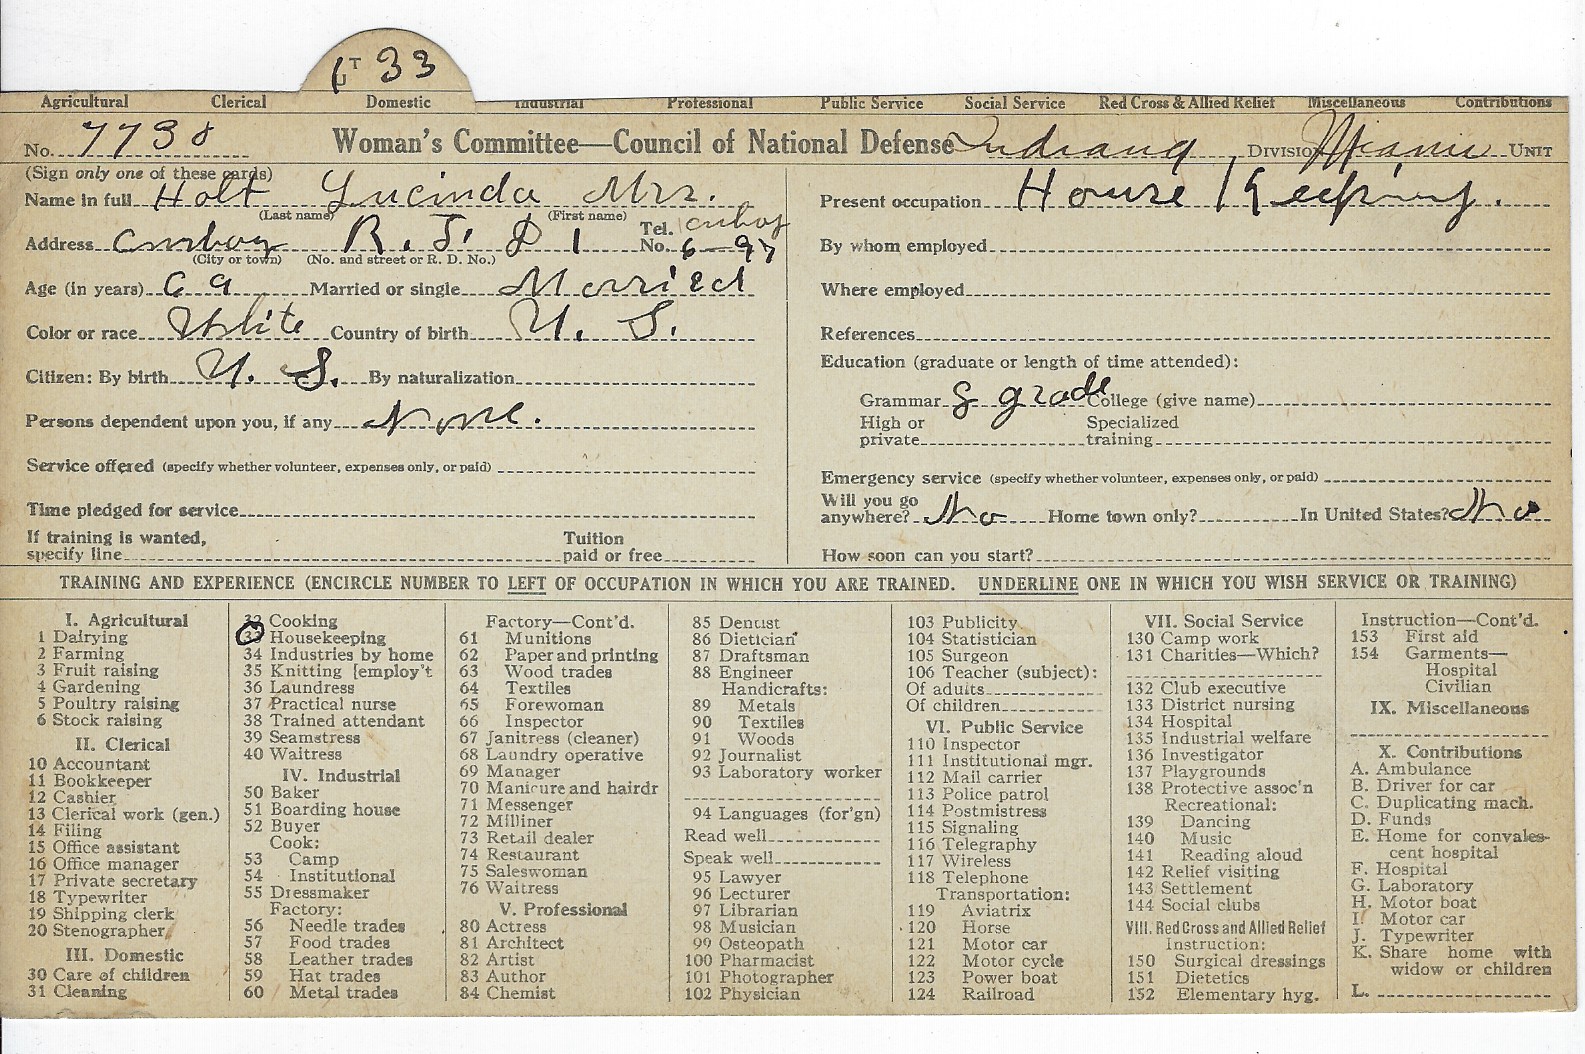 UT 33
Agricultural Clerical Domestic Industrial Professional Public Service Social Service Red Cross & Allied Relief Miscellaneous Contributions
No. 7738 Woman's Committee—Council of National Defense Indiana DIVISION Miami UNIT
(Sign only one of these cards)
Name in full Holt Lucinda Mrs.
(Last name) (First name)
Address Amboy R. F. D 1 Tel. No. Amboy 6-97
(City or town) (No. and street or R. D. No.)
Age (in years) 69 Married or single Married
Color or race White Country of birth U. S.
Citizen: By birth U. S. By naturalization
Persons dependent upon you, if any None.
Service offered (specify whether volunteer, expenses only, or paid)
Time pledged for service
If training is wanted, specify line Tuition paid or free
Present occupation House Keeping.
By whom employed
Where employed
References
Education (graduate or length of time attended):
Grammar 8 grade College (give name)
High or private Specialized training
Emergency service (specify whether volunteer, expenses only, or paid)
Will you go anywhere? No Home town only? In United States? No
How soon can you start?
TRAINING AND EXPERIENCE (ENCIRCLE NUMBER TO LEFT OF OCCUPATION IN WHICH YOU ARE TRAINED. UNDERLINE ONE IN WHICH YOU WISH SERVICE OR TRAINING)
I. Agricultural
1 Dairying
2 Farming
3 Fruit raising
4 Gardening
5 Poultry raising
6 Stock raising
II. Clerical
10 Accountant
11 Bookkeeper
12 Cashier
13 Clerical work (gen.)
14 Filing
15 Office assistant
16 Office manager
17 Private secretary
18 Typewriter
19 Shipping clerk
20 Stenographer
III. Domestic
30 Care of children
31 Cleaning
32 Cooking
33 Housekeeping
34 Industries by home
35 Knitting [employ't
36 Laundress
37 Practical nurse
38 Trained attendant
39 Seamstress
40 Waitress
IV. Industrial
50 Baker
51 Boarding house
52 Buyer
Cook:
53 Camp
54 Institutional
55 Dressmaker
Factory:
56 Needle trades
57 Food trades
58 Leather trades
59 Hat trades
60 Metal trades
Factory—Cont'd.
61 Munitions
62 Paper and printing
63 Wood trades
64 Textiles
65 Forewoman
66 Inspector
67 Janitress (cleaner)
68 Laundry operative
69 Manager
70 Manicure and hairdr
71 Messenger
72 Milliner
73 Retail dealer
74 Restaurant
75 Saleswoman
76 Waitress
V. Professional
80 Actress
81 Architect
82 Artist
83 Author
84 Chemist
85 Dentist
86 Dietician
87 Draftsman
88 Engineer
Handicrafts:
89 Metals
90 Textiles
91 Woods
92 Journalist
93 Laboratory worker
94 Languages (for'gn)
Read well
Speak well
95 Lawyer
96 Lecturer
97 Librarian
98 Musician
99 Osteopath
100 Pharmacist
101 Photographer
102 Physician
103 Publicity
104 Statistician
105 Surgeon
106 Teacher (subject):
Of adults
Of children
VI. Public Service
110 Inspector
111 Institutional mgr.
112 Mail carrier
113 Police patrol
114 Postmistress
115 Signaling
116 Telegraphy
117 Wireless
118 Telephone
Transportation:
119 Aviatrix
120 Horse
121 Motor car
122 Motor cycle
123 Power boat
124 Railroad
VII. Social Service
130 Camp work
131 Charities—Which?
132 Club executive
133 District nursing
134 Hospital
135 Industrial welfare
136 Investigator
137 Playgrounds
138 Protective assoc'n
Recreational:
139 Dancing
140 Music
141 Reading aloud
142 Relief visiting
143 Settlement
144 Social clubs
VIII. Red Cross and Allied Relief
Instruction:
150 Surgical dressings
151 Dietetics
152 Elementary hyg.
Instruction—Cont'd.
153 First aid
154 Garments—
Hospital
Civilian
IX. Miscellaneous
X. Contributions
A. Ambulance
B. Driver for car
C. Duplicating mach.
D. Funds
E. Home for convales-
cent hospital
F. Hospital
G. Laboratory
H. Motor boat
I. Motor car
J. Typewriter
K. Share home with
widow or children
L.